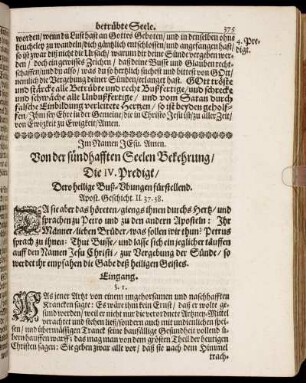 betrübte Seele. 375
worden/ wenn du Lust hast an Gottes Geboten/ und in denselben ohne
heucheley zu wandeln/ dich gäntzlich entschlossen/ und angefangen hast/
so ist zwar diß nicht die Ursach/ warum dir deine Sünde vergeben wer-
den/ doch ein gewisses Zeichen/ daß deine Busse und Glauben recht
schaffen/ und du also/ was du so hertzlich suchest und bittest von GOtt/
nemlich die Vergebung deiner Sünden/ erlanget hast. GOtt tröste
und stärcke alle Betrübte und recht Bußfertige/ und schrecke
und schwäche alle Unbußfertige/ und vom Satan durch
falsche Einbildung verleitete Hertzen/ so ist beyden geholf-
fen/ Ihm sey Ehre in der Gemeine/ die in Christo Jesu ist/ zu aller Zeit/
von Ewigkeit zu Ewigkeit/ Amen.
4. Pre-
digt.
Im Namen JEsu. Amen.
Von der sündhafften Seelen Bekehrung/
Die IV. Predigt/
Dero heilige Buß-Übungen fürstellend.
Apost. Geschicht. II. 37. 38.
DA sie aber das höreten/ giengs ihnen durchs Hertz/ und
sprachen zu Petro und zu den andern Aposteln: Ihr
Männer/ lieben Brüder/ was sollen wir thun? Petrus
sprach zu ihnen: Thut Busse/ und lasse sich ein jeglicher täuffen
auff den Namen Jesu Christi/ zur Vergebung der Sünde/ so
werdet ihr empfahen die Gabe deß heiligen Geistes.
Eingang.
§. 1.
WAs jener Artzt von einem ungehorsamen und naschhafften
Krancken sagte: Es wäre ihm kein Ernst/ daß er wolte gesund
werden/ weil er nicht nur die verordnete Artzney-Mittel
verachtet und stehen ließ/ sondern auch mit undienlichen spei-
sen/ und übermässigen Tranck seine baufällige Gesundheit vollend
über hauffen warff: das mag man von dem grösten Theil der heutigen
Christen sagen: Sie geben zwar alle vor/ daß sie nach dem Himmel
trach-